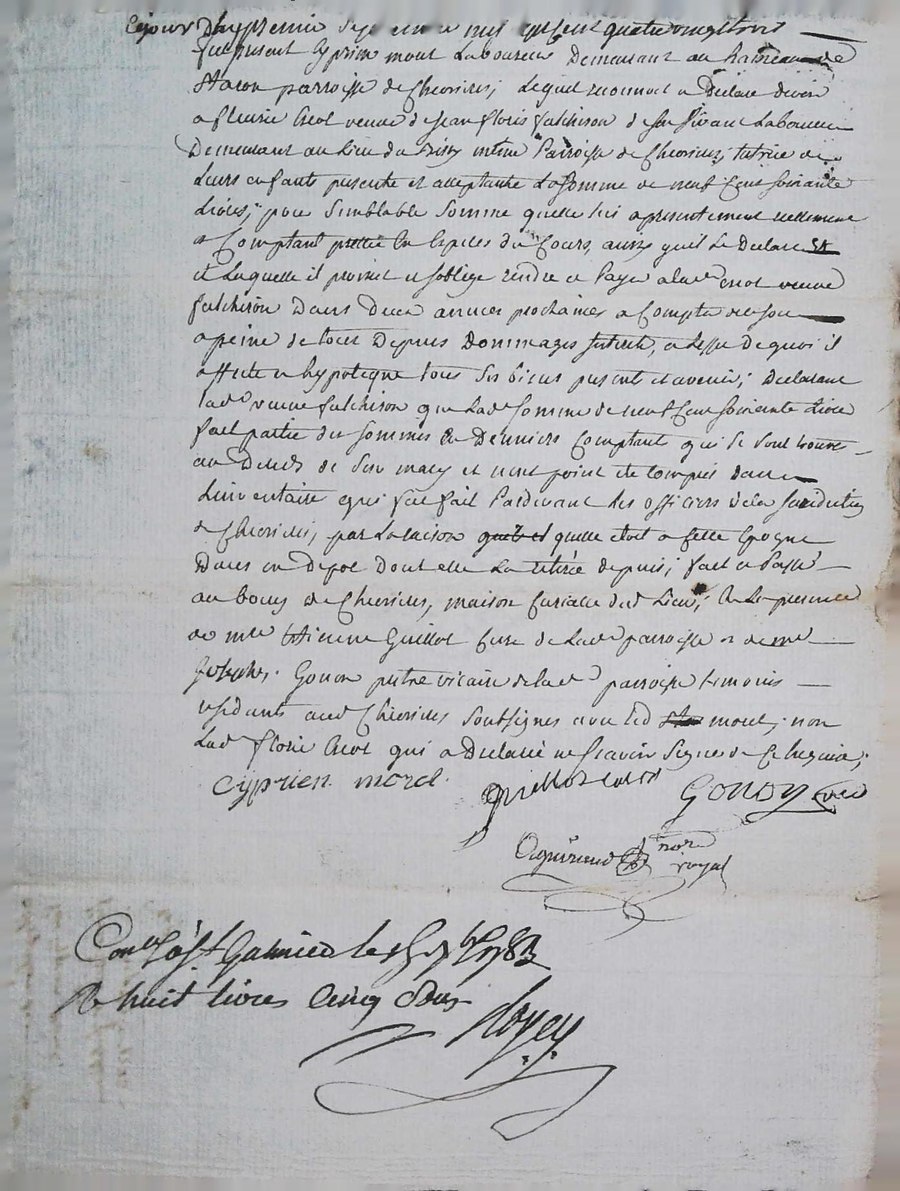 Cejourd'huy premier sept mil sept cent quatrevingttrois
fut present Cyprien morel Laboureur Demeurant au hameau de
parroisse de Chevrieres, Lequel reconnoit et Declare devoir
a fleurie Crot veuve de Jean floris falchison de son vivant Laboureur
Demeurant au Lieu du même Parroisse de Chevrieres, tutrice de
Leurs enfants presente et acceptante La Somme de neuf Cent soixante
Livres, pour Semblable Somme quelle lui a presentement reellement
et Comptant pretée En Especes du Cours, ainsy quil Le Declare
et Laquelle il promet et soblige rendre et Payer a lad Crot veuve
falchison Dans Deux années prochaines a Compter de ce jour
a peine de tous Depens Dommages Interets, a leffet De quoi il
affecte et hypoteque tous Ses biens presents et avenir; Declarant
lad veuve falchison que Lad Somme de neuf Cent soixante Livres
fait partie des Sommes En Deniers Comptant qui Se sont trouvé
au Deceds de Son mary et nont point été Compris dans
Linventaire qui fut fait Pardevant les officiers de la Juridiction
de Chevrieres, par La raison quelle etoit a Cette Epoque
Dans un Depot Dont elle La retirée depuis; fait et Passé
au bourg de Chevrieres, maison Curialle dud Lieu, En La presence
de mre Etienne Guillot Curé de Lad parroisse et de mre
Gonon pretre vicaire de lad parroisse temoins
residants aud Chevrieres Soussignés avec led morel, non
Lad florie Crot qui a Declaré ne Scavoir Signer de Ce requise,
Cyprien morel Guillot curé Gonon vic
nore
royal
Conlé a St Galmier le 7bre 1783
R huit livres Cinq sous